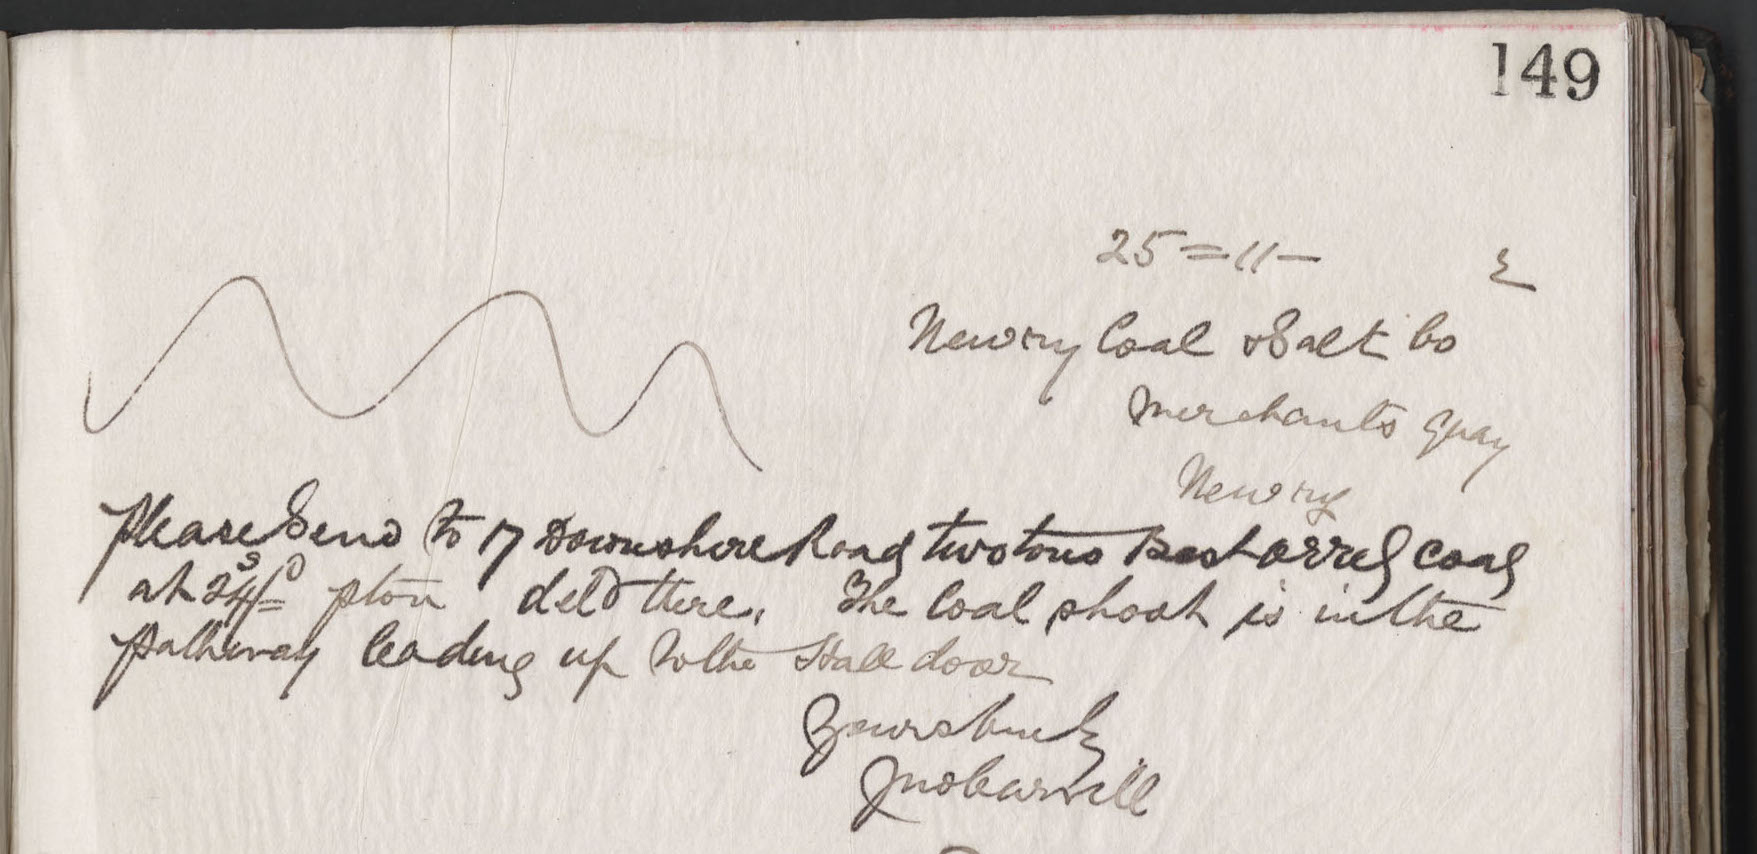 149
25 = 11 —
Newry Coal & Salt Co
Merchants Quay
Newry
Please Send to 17 Downshire Road two tons Best Orrel coal
at 24s/=d pton deld there. The Coal shoot is in the
pathway leading up to the Hall door
Yours truly
Jno Carvill